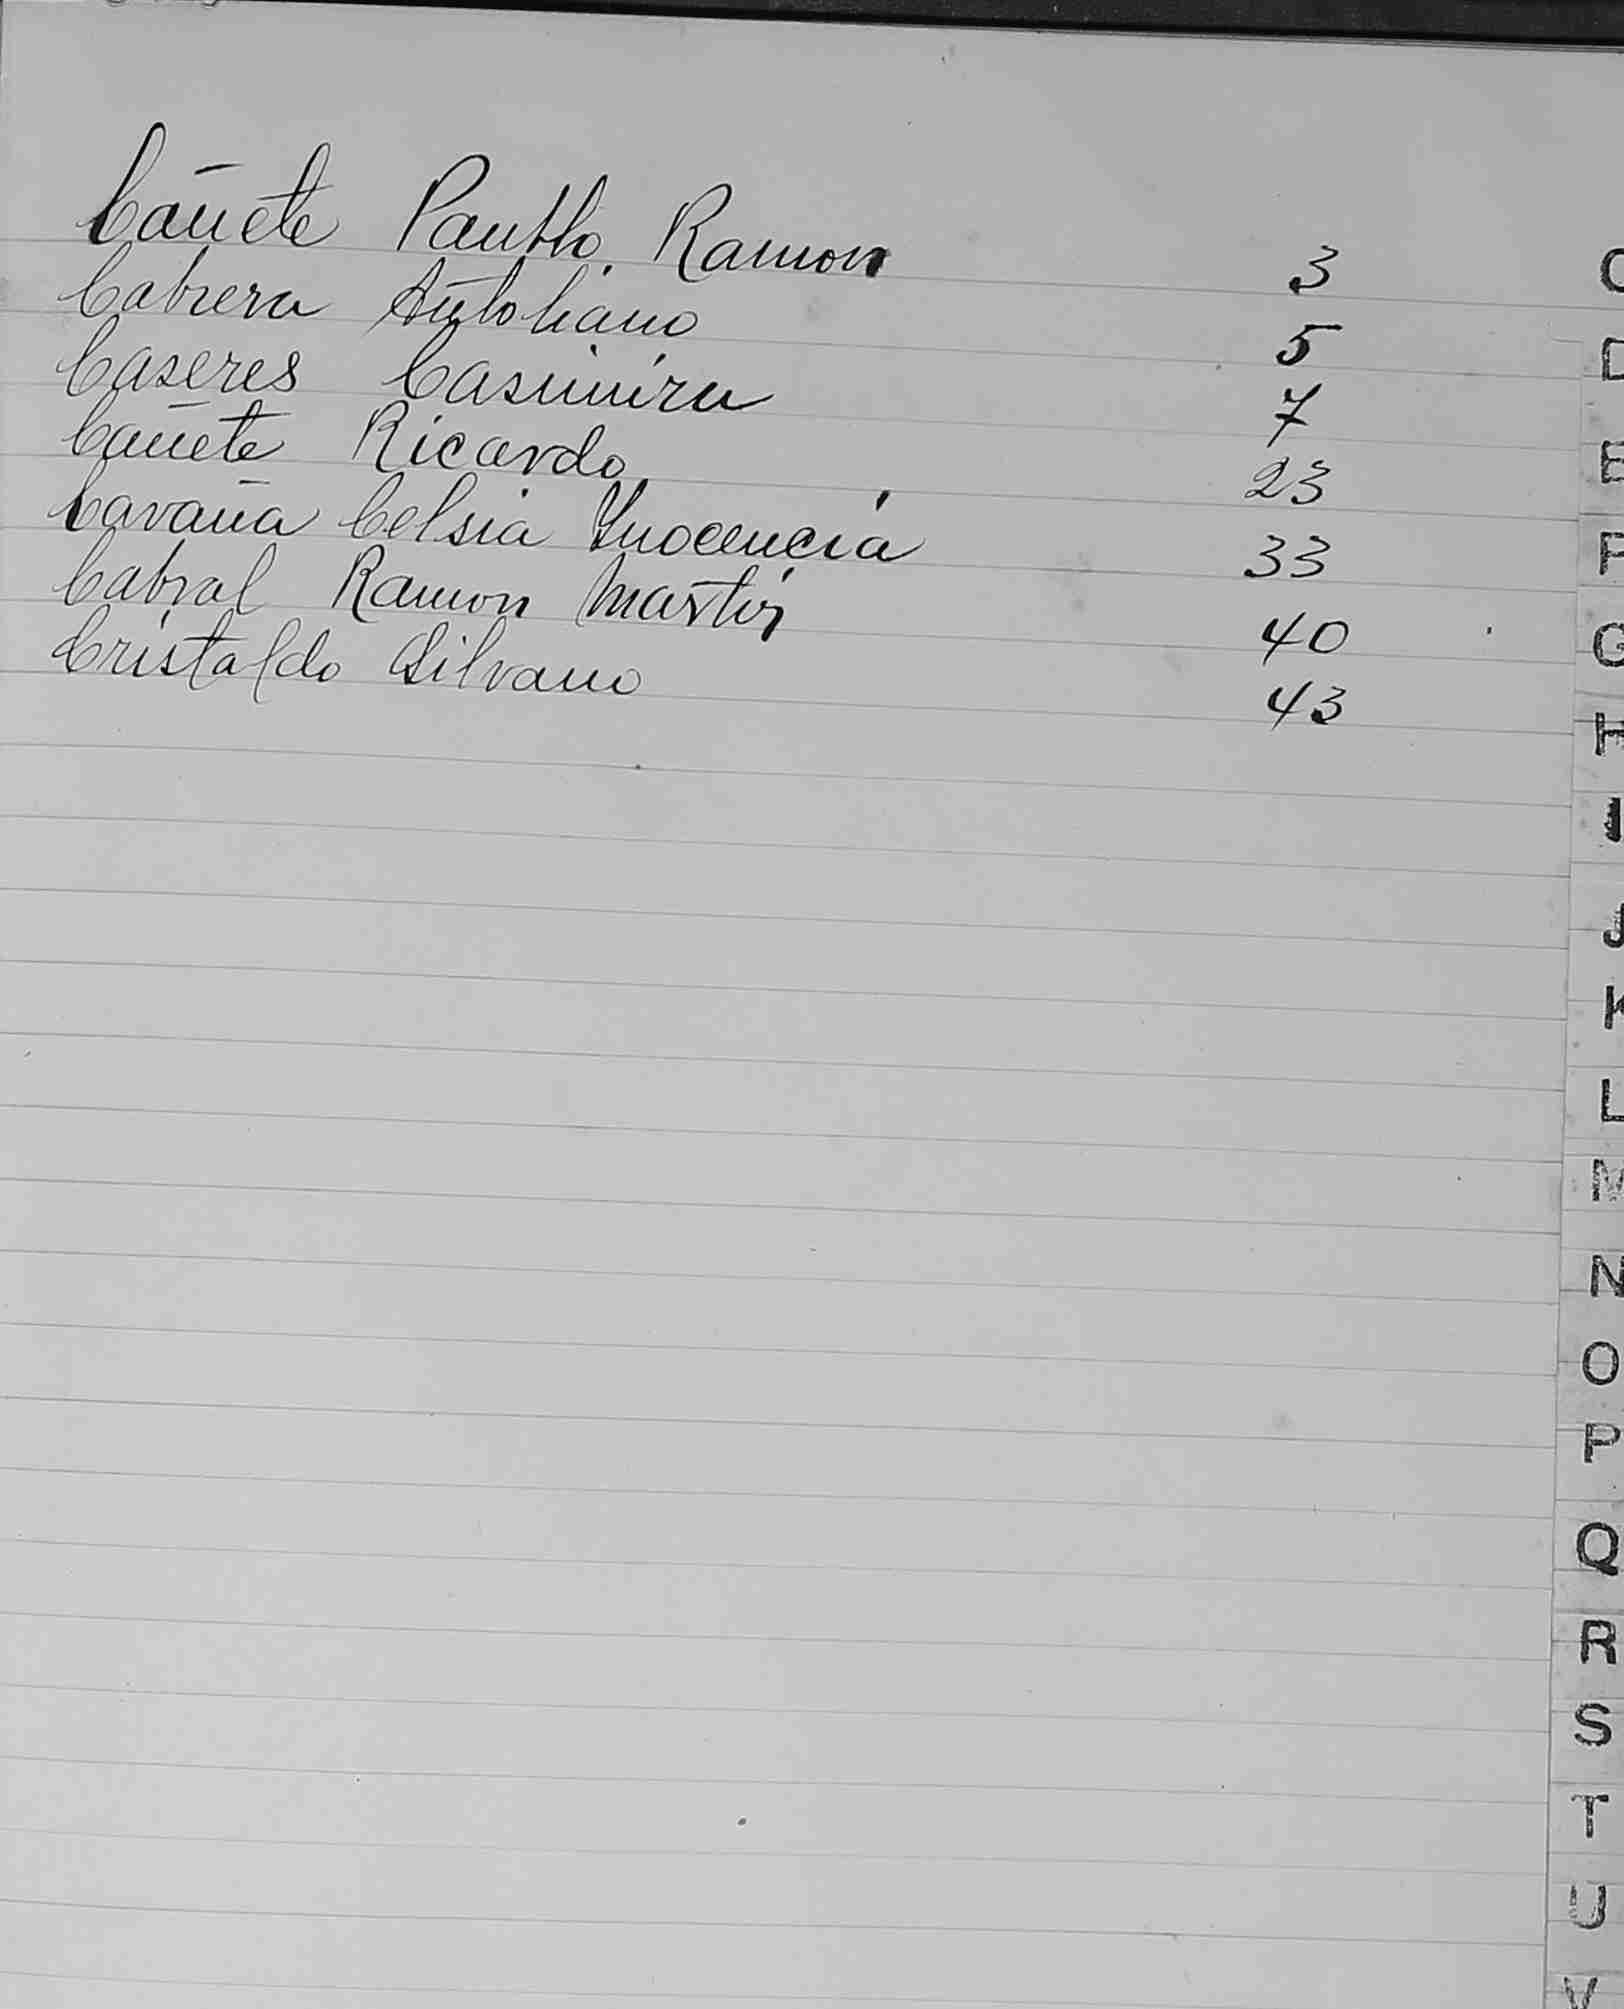 Cañete Ramon 3
Cabrera 5
Caseres Casimira 7
Cañete Ricardo 23
Cavaña Celsia Ynocencia 33
Cabral Ramon Martin 40
Cristaldo Silvano 43
C
D
E
F
G
H
I
J
K
L
M
N
O
P
Q
R
S
T
U
V